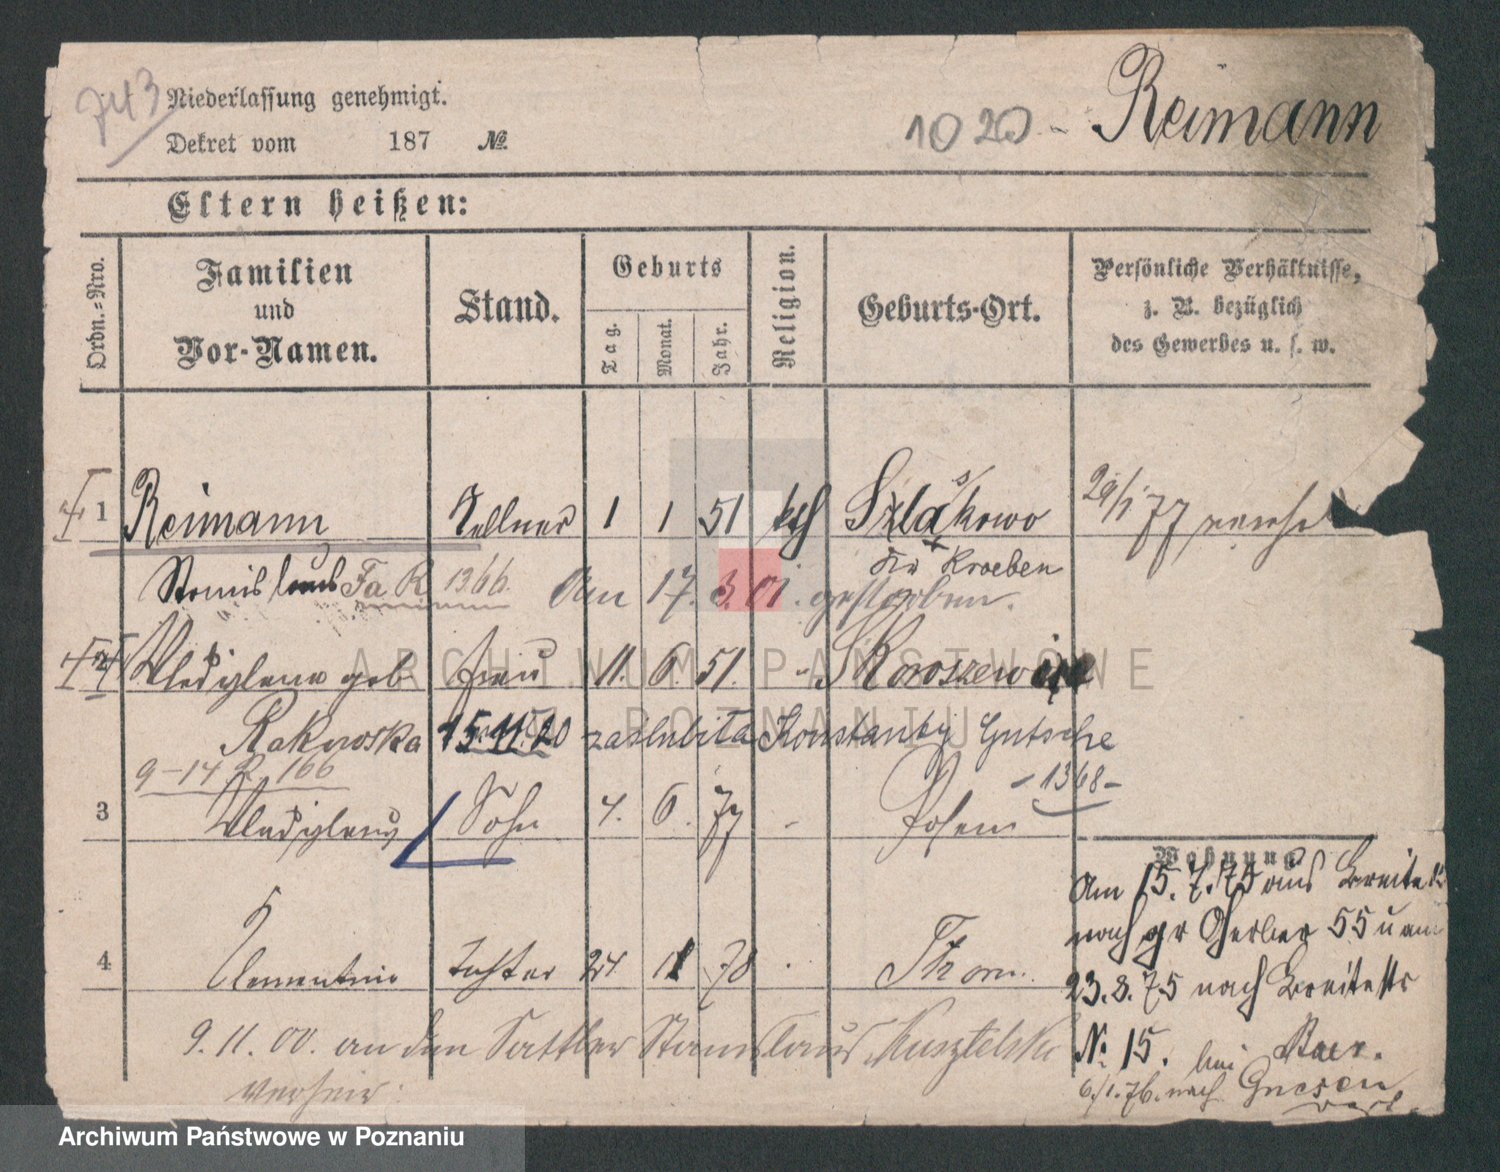 743 Niederlassung genehmigt.
Dekret vom 187 №
1020 - Reimann
Eltern heißen:
Ordn.=Nro. Familien und Vor-Namen. Stand. Geburts Tag. Monat. Jahr. Religion. Geburts-Ort. Persönliche Verhältnisse, z. B. bezüglich des Gewerbes u. s. w.
1 Reimann Kellner 1 1 51 kth 29/1 77
Stanislaus Fa R 1366. Kr Kroeben
Am 17. 3. 01. gestorben.
2 Wladislawa geb Frau 11. 6. 51. -
Rakowska 15.11.20 zaślubiła Konstanty Gutsche
9-14 R 166 - 1368 -
3 Wladislaus Sohn 4. 6. 77 - Posen
Wohnung
4 Clementine Tochter 24. 11 78 . Thorn.
9. 11. 00. an den Sattler Stanislaus verheir.
Am 15. 7. 75 aus Breite
nach gr Gerber 55 u am
23. 8. 75 nach Breitestr
No 15. bei Baer.
6/1. 76. nach Gnesen
ARCHIWUM PAŃSTWOWE
W POZNANIU
Archiwum Państwowe w Poznaniu